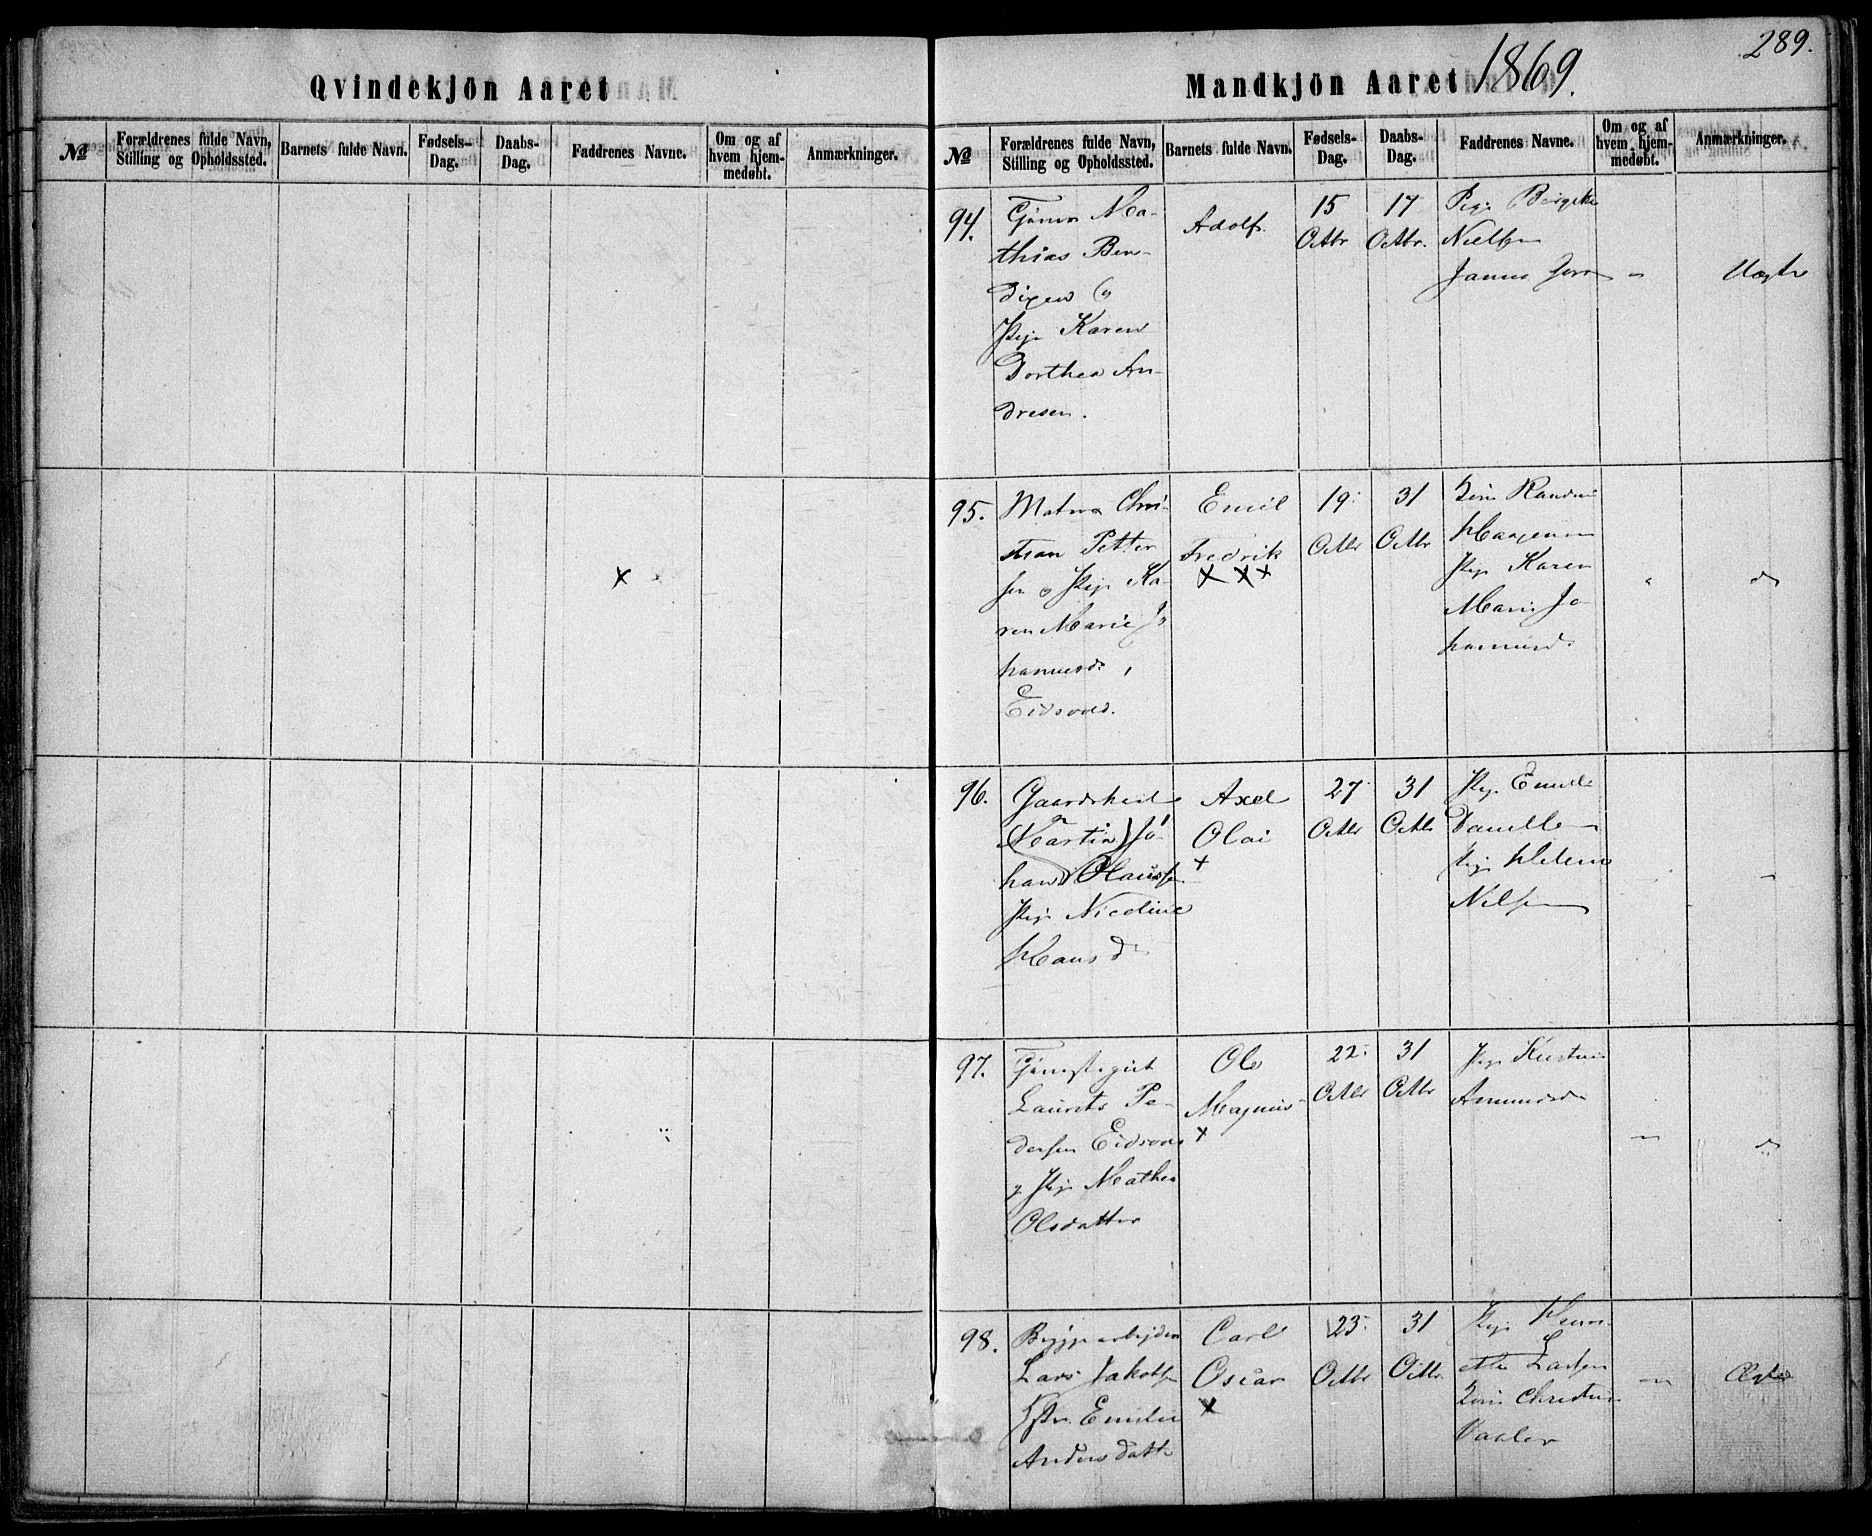 289.
Qvindekjön Aaret
Mandkjön Aaret 1869.
№
Forældrenes fulde Navn, Stilling og Opholdssted.
Barnets fulde Navn.
Fødsels-Dag.
Daabs-Dag.
Faddrenes Navne.
Om og af hvem hjemmedøbt.
Anmærkninger.
№
Forældrenes fulde Navn, Stilling og Opholdssted.
Barnets fulde Navn.
Fødsels-Dag.
Daabs-Dag.
Faddrenes Navne.
Om og af hvem hjemmedøbt.
Anmærkninger.
94.
Ma-
thias Ben-
dixen og
Pige Karen
Dorthea An-
dresen.
Adolf.
15
Octbr
17
Octbr.
Pige
Nielsen
Uægte
95.
Matros Chri-
stian Petter
sen og Pige Ka-
ren Marie Jo
hannesd.
Eidsvold.
Emil
Fredrik
19
Octbr
31
Octbr
Haagensen
Pige Karen
Marie Jo
hannesd.
96.
Gaardskarl
Martin Jo-
han Olaussen
Pige Nicoline
Hansd
Axel
Olai
27
Octbr
31
Octbr
Pige Emilie
Pige Helene
Nilsen
97.
Laurits Pe-
dersen Eidsvold
og Pige Mathea
Olsdatter
Ole
Magnus
22
Octbr
31
Octbr
Pige
Amundsd
98.
Byggearbejder
Lars Jakobsen
Hstr Emilie
Andersdatt
Carl
Oscar
23
Octbr
31
Octbr
Pige Hen-
Larsen
Vaaler
Ægte